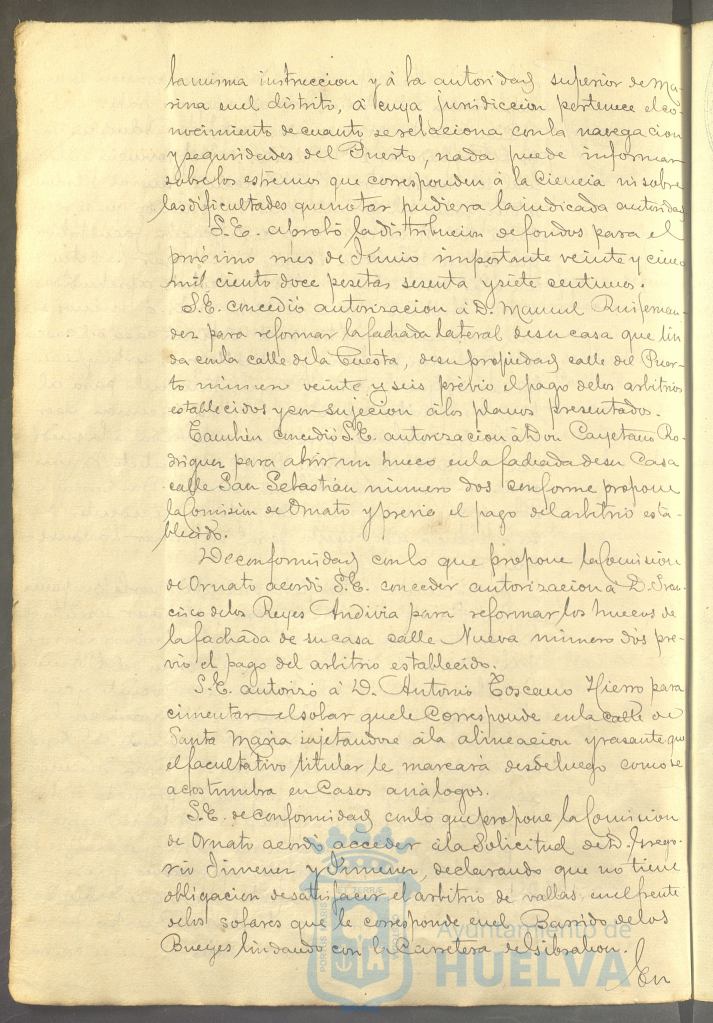 la misma instruccion y á la autoridad superior de Ma-
rina en el distrito, á cuya jurisdiccion pertenece el co-
nocimiento de cuanto se relaciona con la navegacion
y seguridades del Puerto, nada puede informar
sobre los estremos que corresponden á la Ciencia ni sobre
las dificultades que notar pudiera la indicada autoridad
S.E. aprobó la distribucion de fondos para el
próximo mes de Junio importante veinte y cinco
mil ciento doce pesetas sesenta y siete centimos.
S.E. concedió autorizacion á D. Manuel Ruifernan-
dez para reformar la fachada lateral de su casa que lin
da con la calle de la Cuesta, de su propiedad calle del Puer-
to número veinte y seis prévio el pago de los arbitrios
establecidos y con sujecion á los planos presentados.
Tambien concedió S.E. autorizacion á Don Cayetano Ro-
driguez para abrir un hueco en la fachada de su Casa
calle San Sebastián número dos conforme propone
la Comision de Ornato y previo el pago del arbitrio esta-
blecido.
De conformidad con lo que propone la Comision
de Ornato acordó S.E. conceder autorizacion á D. Fran-
cisco de los Reyes Andivia para reformar los huecos de
la fachada de su casa calle Nueva número dos pre-
vio el pago del arbitrio establecido.
S.E. autorizó á D. Antonio Toscano Hierro para
cimentar el solar que le corresponde en la calle de
Santa Maria sujetandose á la alineacion y rasante que
el facultativo titular le marcará desde luego como se
acostumbra en Casos análogos.
S.E. de conformidad con lo que propone la Comision
de Ornato acordó acceder á la Solicitud de D. Grego-
rio Jimenez y Jimenez, declarando que no tiene
obligacion de satisfacer el arbitrio de vallas en el frente
de los solares que le corresponde en el Barrido de los
Bueyes lindando con la Carretera de Gibraleon.
En
Ayuntamiento de
HUELVA